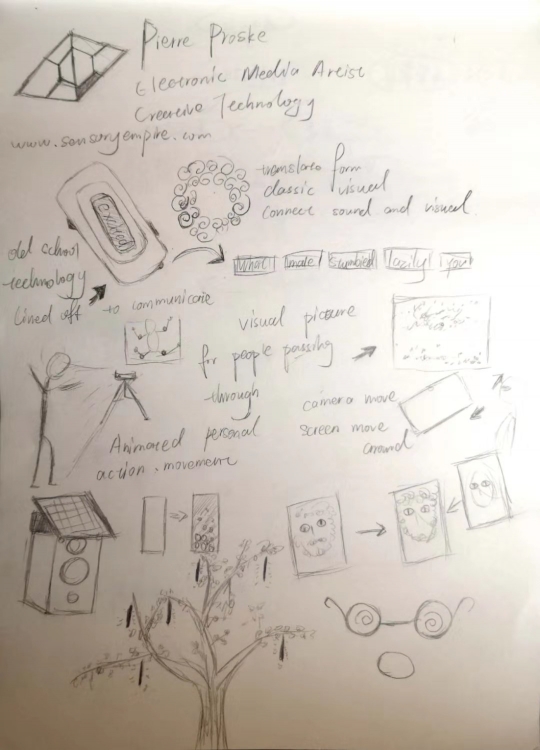 Pierre Proske
Electronic Media Artist
Creative Technology
www.sensoryempire.com
translate form
classic visual
connect sound and visual.
old school
technology
lined off
to communicate
What male Stumbled Lazily You
visual picture
for people passing
through
camera move
screen move
around
Animated personal
action. movement